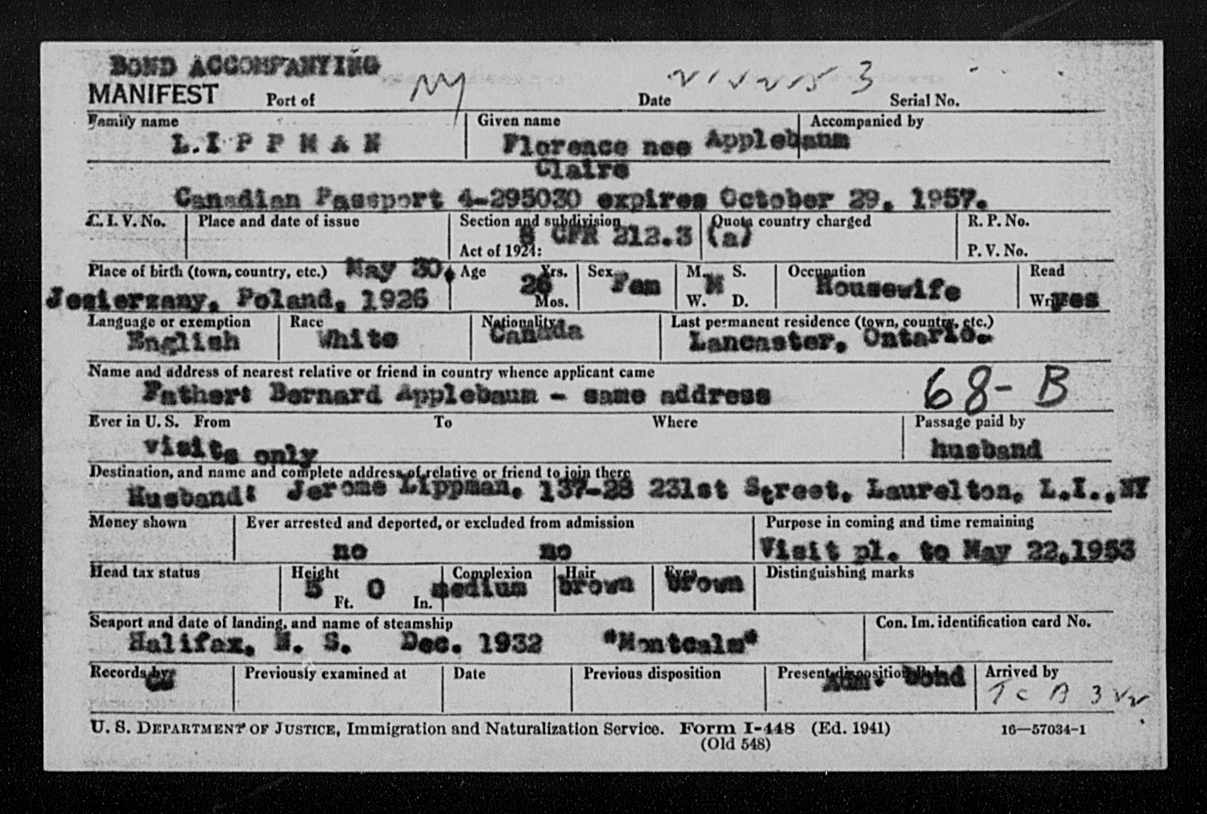 BOND ACCOMPANYING
MANIFEST Port of NY Date 3 Serial No.
Family name Given name Accompanied by
L.I P P M A N Florence nee Applebaum
Claire
Canadian Passport 4-295030 expires October 29, 1957.
C. I. V. No. Place and date of issue Section and subdivision Quota country charged R. P. No.
8 CFR 212.3 (a)
Act of 1924: P. V. No.
Place of birth (town, country, etc.) May 30, Age 26 Yrs. Sex Fem M. M S. Occupation Read
Jezierzany, Poland, 1926 Mos. W. D. Housewife yes
Language or exemption Race Nationality Last permanent residence (town, country, etc.)
English White Canada Lancaster, Ontario.
Name and address of nearest relative or friend in country whence applicant came
Father: Bernard Applebaum - same address 68-B
Ever in U. S. From To Where Passage paid by
visits only husband
Destination, and name and complete address of relative or friend to join there
Husband: Jerome Lippman, 137-28 231st Street, Laurelton, L.I.,NY
Money shown Ever arrested and deported, or excluded from admission Purpose in coming and time remaining
no no Visit pl. to May 22,1953
Head tax status Height Complexion Hair Eyes Distinguishing marks
5 Ft. 0 In. medium brown brown
Seaport and date of landing, and name of steamship Con. Im. identification card No.
Halifax, N. S. Dec. 1932 "Montcalm"
Records by Previously examined at Date Previous disposition Present disposition Arrived by
Adm. bond TCA 3
U. S. DEPARTMENT OF JUSTICE, Immigration and Naturalization Service. Form I-448 (Ed. 1941) 16—57034-1
(Old 548)